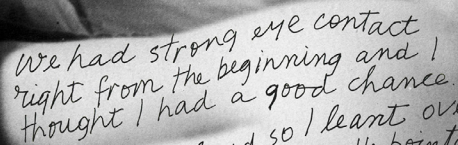 We had strong eye contact
right from the beginning and I
thought I had a good chance.
so I leant